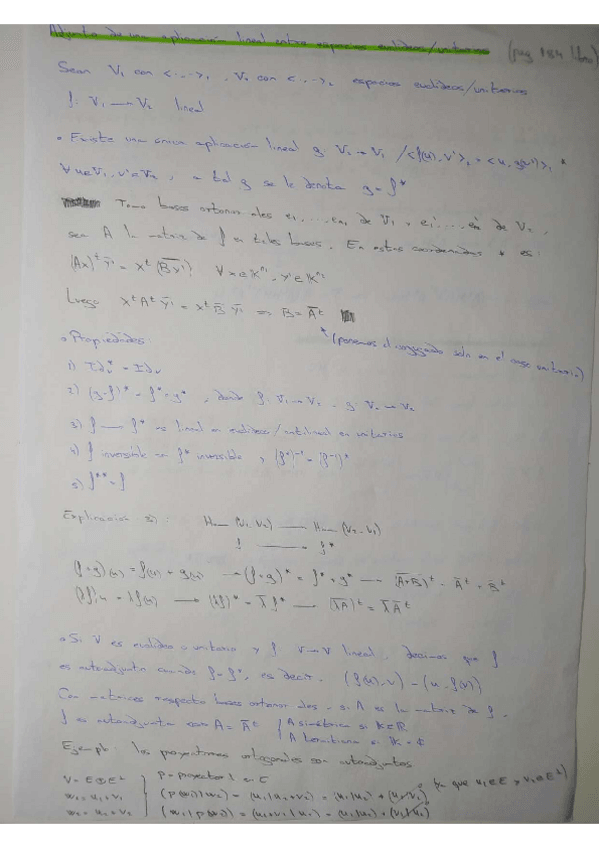 Adjunta de una aplicación lineal entre espacios euclídeos/unitarios (pag 184 libro)
Sean V₁ con <·,·>₁, V₂ con <·,·>₂ espacios euclídeos/unitarios
f: V₁ → V₂ lineal
• Existe una única aplicación lineal g: V₂ → V₁ / <f(u), v'>₂ = <u, g(v')>₁ *
∀ u∈V₁, v'∈V₂, a tal g se le denota g = f*
Tomo bases ortonormales e₁,...,en₁ de V₁ y e₁',...,en' de V₂,
sea A la matriz de f en tales bases. En estas coordenadas * es:
(Ax)ᵗ ȳ' = xᵗ (B̅y̅') ∀ x∈Kⁿ¹, y'∈Kⁿ²
Luego xᵗAᵗȳ' = xᵗB̄ȳ' ⇒ B = Āᵗ
* (ponemos el conjugado solo en el caso unitario)
• Propiedades:
1) Idv* = Idv
2) (g∘f)* = f*∘g*, donde f: V₁→V₂, g: V₂→V₃
3) f → f* es lineal en euclídeo / antilineal en unitarios
4) f inversible ⇒ f* inversible y (f*)⁻¹ = (f⁻¹)*
5) f** = f
Explicación 3): Hom(V₁,V₂) → Hom(V₂,V₁)
f → f*
(f+g)(u) = f(u) + g(u) → (f+g)* = f* + g* → (A̅+B̅)ᵗ = Āᵗ + B̄ᵗ
(λf)u = λf(u) → (λf)* = λ̄f* → (λ̅A̅)ᵗ = λ̄Āᵗ
• Si V es euclídeo o unitario y f: V→V lineal, decimos que f
es autoadjunta cuando f = f*, es decir, (f(u), v) = (u, f(v))
Con matrices respecto bases ortonormales, si A es la matriz de f,
f es autoadjunta con A = Āᵗ { A simétrica si K=R
A hermitiana si K = C
Ejemplo: las proyecciones ortogonales son autoadjuntas
V = E⊕E⊥ } P = proyector ⊥ en E (ya que u₁∈E y v₂∈E⊥)
w₁ = u₁+v₁ } (p(w₁)|w₂) = (u₁|u₂+v₂) = (u₁|u₂) + (u₁|v₂)
w₂ = u₂+v₂ } (w₁|p(w₂)) = (u₁+v₁|u₂) = (u₁|u₂) + (v₁|u₂)